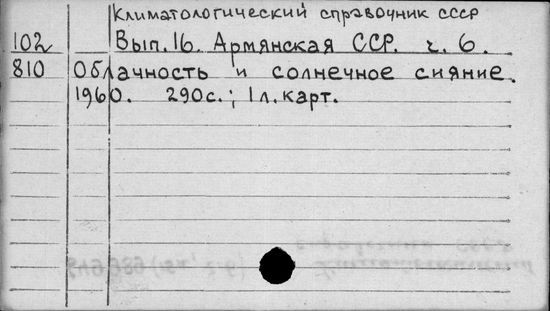 Климатологический справочник СССР
102 Вып. 16. Армянская ССР. ч. 6.
810 Облачность и солнечное сияние.
1960. 290с.; 1 л. карт.